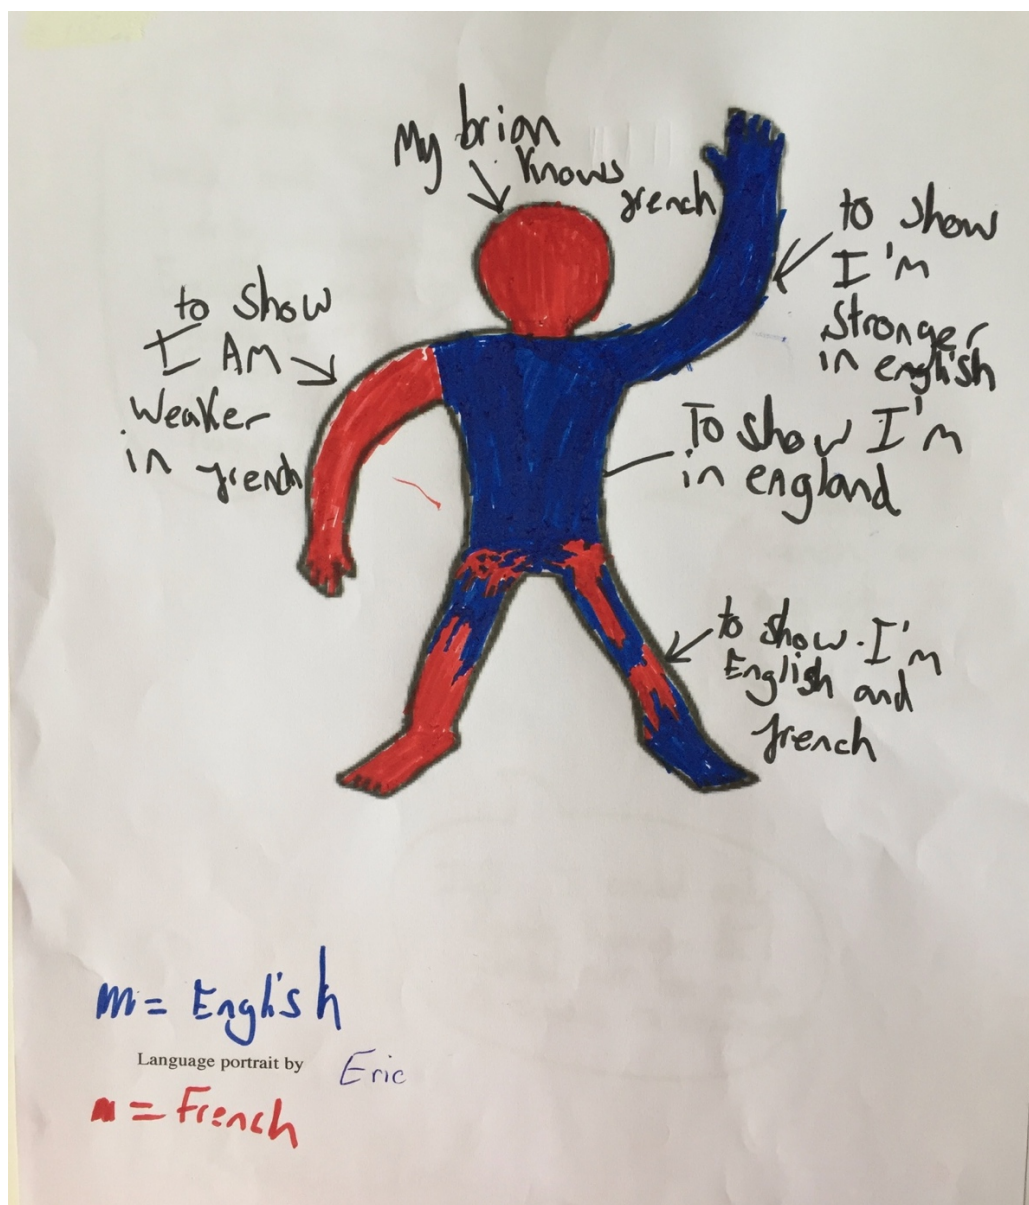 My brian
knows
french
to show
I'm
stronger
in english
to show
I AM
weaker
in french
To show I'm
in england
to show. I'm
English and
french
= English
Language portrait by Eric
= French